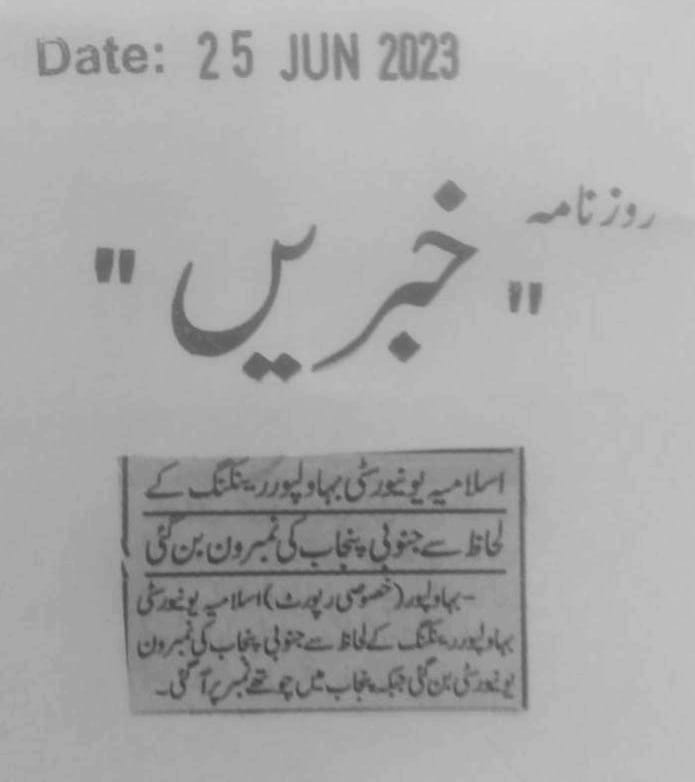 Date: 25 JUN 2023
روزنامہ
"خبریں"
اسلامیہ یونیورسٹی بہاولپور رینکنگ کے
لحاظ سے جنوبی پنجاب کی نمبرون بن گئی
-بہاولپور (خصوصی رپورٹ) اسلامیہ یونیورسٹی
بہاولپور رینکنگ کے لحاظ سے جنوبی پنجاب کی نمبرون
یونیورسٹی بن گئی جبکہ پنجاب میں چوتھے نمبر پر آ گئی۔